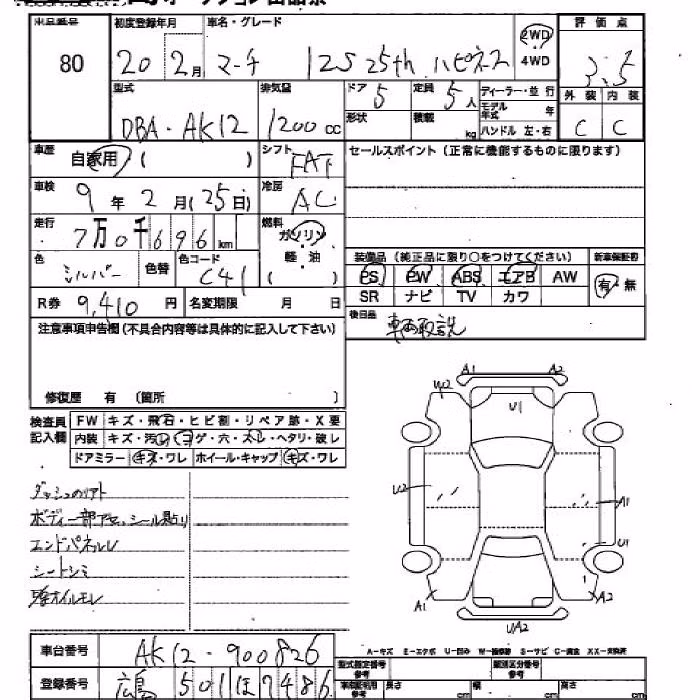 出品番号 初度登録年月 車名・グレード 2WD 4WD 評価点
80 20 2月 マーチ 12S 25th ハピネス 3.5
型式 排気量 ドア 5 定員 5人 ディーラー・並行 外装 内装
DBA・AK12 1200cc 形状 積載 kg モデル年式 年 ハンドル 左・右 C C
車歴 自家用 ( ) シフト FAT セールスポイント(正常に機能するものに限ります)
車検 9年 2月(25日) 冷房 AC
走行 7万0千696km 燃料 ガソリン 軽油 ( )
装備品(純正品に限り○をつけてください) 新車保証書
色 シルバー 色替 色コード C41 PS PW ABS エアB AW 有・無
R券 9,410円 名変期限 月 日 SR ナビ TV カワ
注意事項申告欄(不具合内容等は具体的に記入して下さい) 後日品 車両取説
修復歴 有 (箇所 )
検査員記入欄 FW キズ・飛石・ヒビ割・リペア跡・X要
内装 キズ・汚レ・コゲ・穴・スレ・ヘタリ・破レ
ドアミラー キズ・ワレ ホイール・キャップ キズ・ワレ
A1 A2
U1
U2
A1
U1
A1
A2
UA2
ボディ一部アセッシール貼り
エンドパネルU
シートシミ
A-キズ E-エクボ U-凹み W-補修跡 S-サビ C-腐食 XX-交換済
車台番号 AK12-900826
登録番号 広島 501 ほ 7486
型式指定番号 参考 類別区分番号 参考
長さ cm 幅 cm 高さ cm